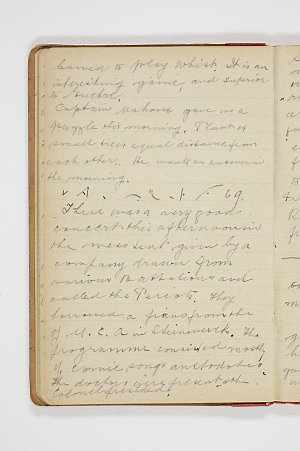 learned to play Whist. It is an
interesting game, and superior
to Euchre.
Captain Mahone gave us a
puzzle this morning. Plant 4
small trees equal distance from
each other. He wants an answer in
the morning.
69.
There was a very good
concert this afternoon in
the mess tent given by a
company drawn from
various Battalions and
called the Pierots. They
borrowed a piano from the
Y. M. C. A in Steinwerck. The
programme consisted mostly
of comic songs and
The doctors were present & the
Colonel presided.